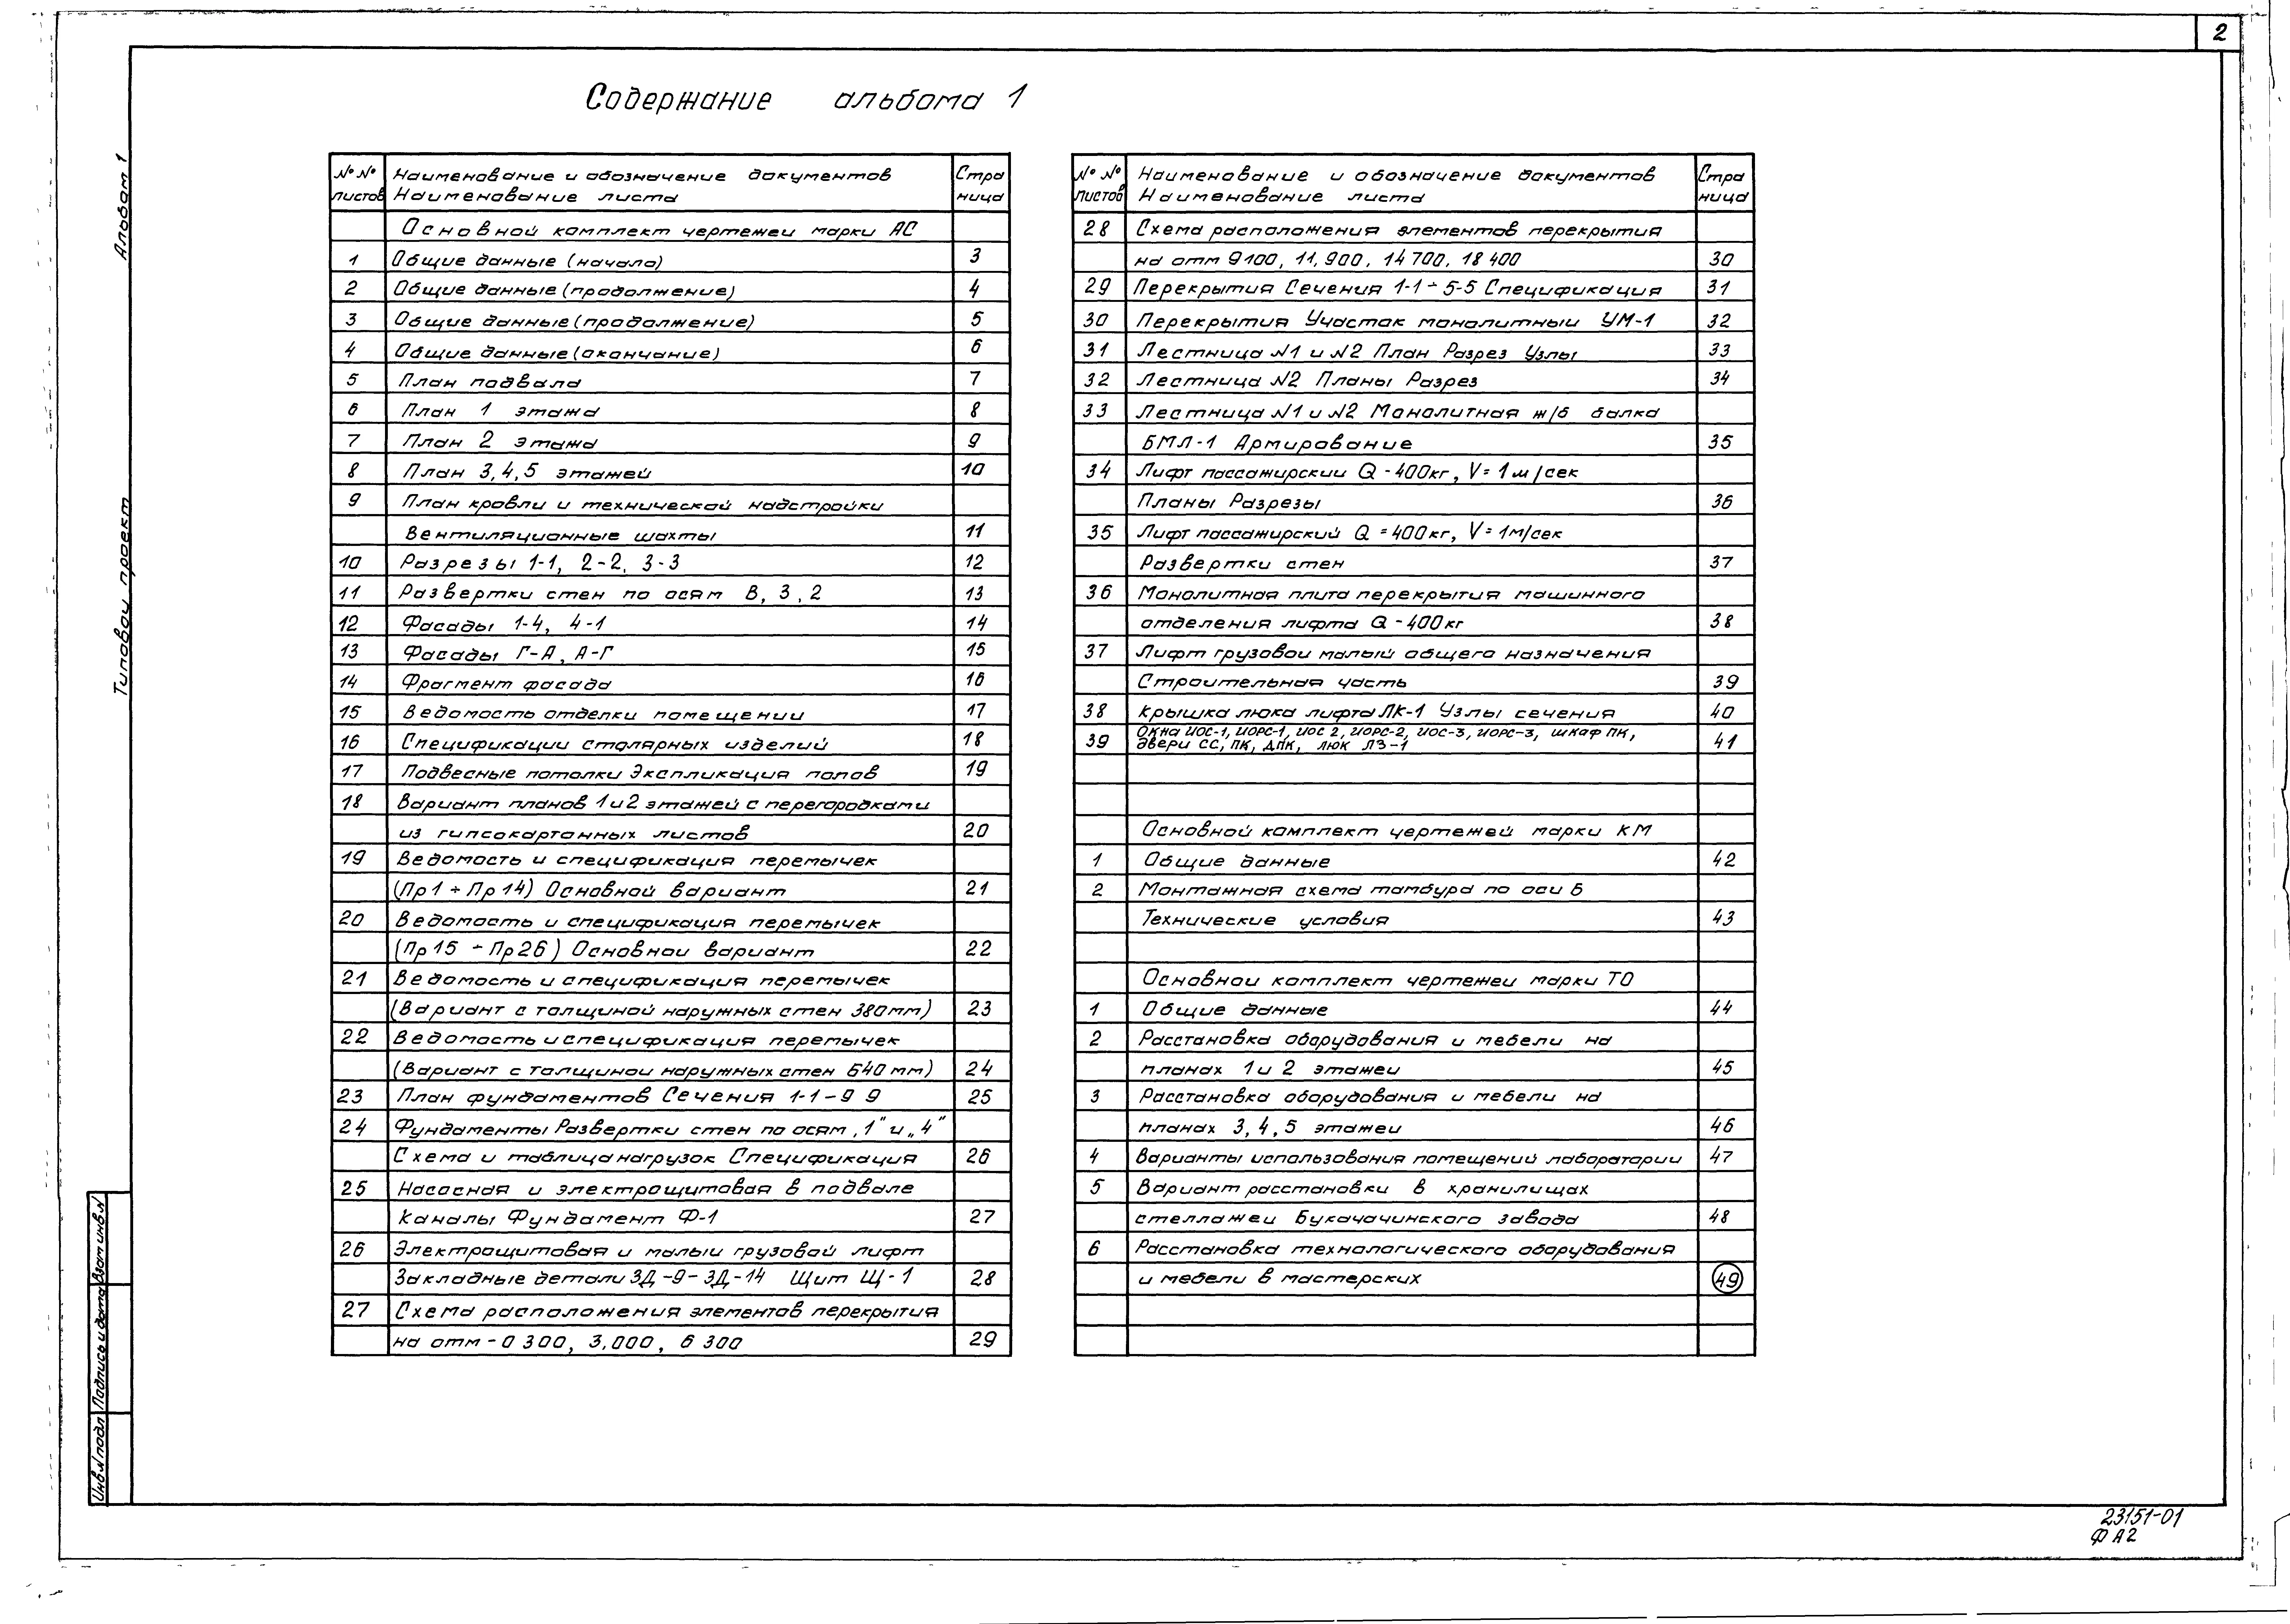 2
Содержание альбома 1
Альбом 1
Типовой проект
№№ листов Наименование и обозначение документов Наименование листа Страница
Основной комплект чертежей марки АС
1 Общие данные (начало) 3
2 Общие данные (продолжение) 4
3 Общие данные (продолжение) 5
4 Общие данные (окончание) 6
5 План подвала 7
6 План 1 этажа 8
7 План 2 этажа 9
8 План 3,4,5 этажей 10
9 План кровли и технической надстройки
Вентиляционные шахты 11
10 Разрезы 1-1, 2-2, 3-3 12
11 Развертки стен по осям В, 3, 2 13
12 Фасады 1-4, 4-1 14
13 Фасады Г-А, А-Г 15
14 Фрагмент фасада 16
15 Ведомость отделки помещении 17
16 Спецификации столярных изделий 18
17 Подвесные потолки Экспликация полов 19
18 Вариант планов 1 и 2 этажей с перегородками
из гипсокартонных листов 20
19 Ведомость и спецификация перемычек
(Пр1 ÷ Пр14) Основной вариант 21
20 Ведомость и спецификация перемычек
(Пр15 ÷ Пр26) Основнои вариант 22
21 Ведомость и спецификация перемычек
(Вариант с толщиной наружных стен 380мм) 23
22 Ведомость и спецификация перемычек
(Вариант с толщинои наружных стен 640мм) 24
23 План фундаментов Сечения 1-1 – 9 9 25
24 Фундаменты Развертки стен по осям „1" и „4"
Схема и таблица нагрузок Спецификация 26
25 Насосная и электрощитовая в подвале
Каналы Фундамент Ф-1 27
26 Электрощитовая и малыи грузовой лифт
Закладные детали ЗД-9-ЗД-14 Щит Щ-1 28
27 Схема расположения элементов перекрытия
на отм -0 300, 3.000, 6 300 29
№№ листов Наименование и обозначение документов Наименование листа Страница
28 Схема расположения элементов перекрытия
на отм 9100, 11,900. 14 700. 18 400 30
29 Перекрытия Сечения 1-1 ÷ 5-5 Спецификация 31
30 Перекрытия Участок монолитныи УМ-1 32
31 Лестница N1 и N2 План Разрез Узлы 33
32 Лестница N2 Планы Разрез 34
33 Лестница N1 и N2 Монолитная ж/б балка
БМЛ-1 Армирование 35
34 Лифт пассажирскии Q - 400кг, V = 1м/сек
Планы Разрезы 36
35 Лифт пассажирский Q = 400кг, V = 1м/сек
Развертки стен 37
36 Монолитная плита перекрытия машинного
отделения лифта Q - 400кг 38
37 Лифт грузовои малый общего назначения
Строительная часть 39
38 Крышка люка лифта ЛК-1 Узлы сечения 40
39 Окна ИОС-1, ИОРС-1, ИОС 2, ИОРС-2, ИОС-3, ИОРС-3, шкаф ПК,
двери СС, ПК, ДПК, люк ЛЗ-1 41
Основной комплект чертежей марки КМ
1 Общие данные 42
2 Монтажная схема тамбура по оси Б
Технические условия 43
Основнои комплект чертежеи марки ТО
1 Общие данные 44
2 Расстановка оборудования и мебели на
планах 1 и 2 этажеи 45
3 Расстановка оборудования и мебели на
планах 3,4,5 этажеи 46
4 Варианты использования помещений лаборатории 47
5 Вариант расстановки в хранилищах
стеллажеи Букачачинского завода 48
6 Расстановка технологического оборудования
и мебели в мастерских 49
Инв.N подл Подпись и дата Взам инв.N
23151-01
Ф А2